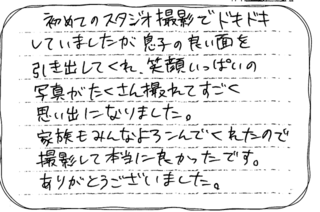 初めてのスタジオ撮影でドキドキ
していましたが息子の良い面を
引き出してくれ、笑顔いっぱいの
写真がたくさん撮れてすごく
思い出になりました。
家族もみんなよろこんでくれたので
撮影して本当に良かったです。
ありがとうございました。